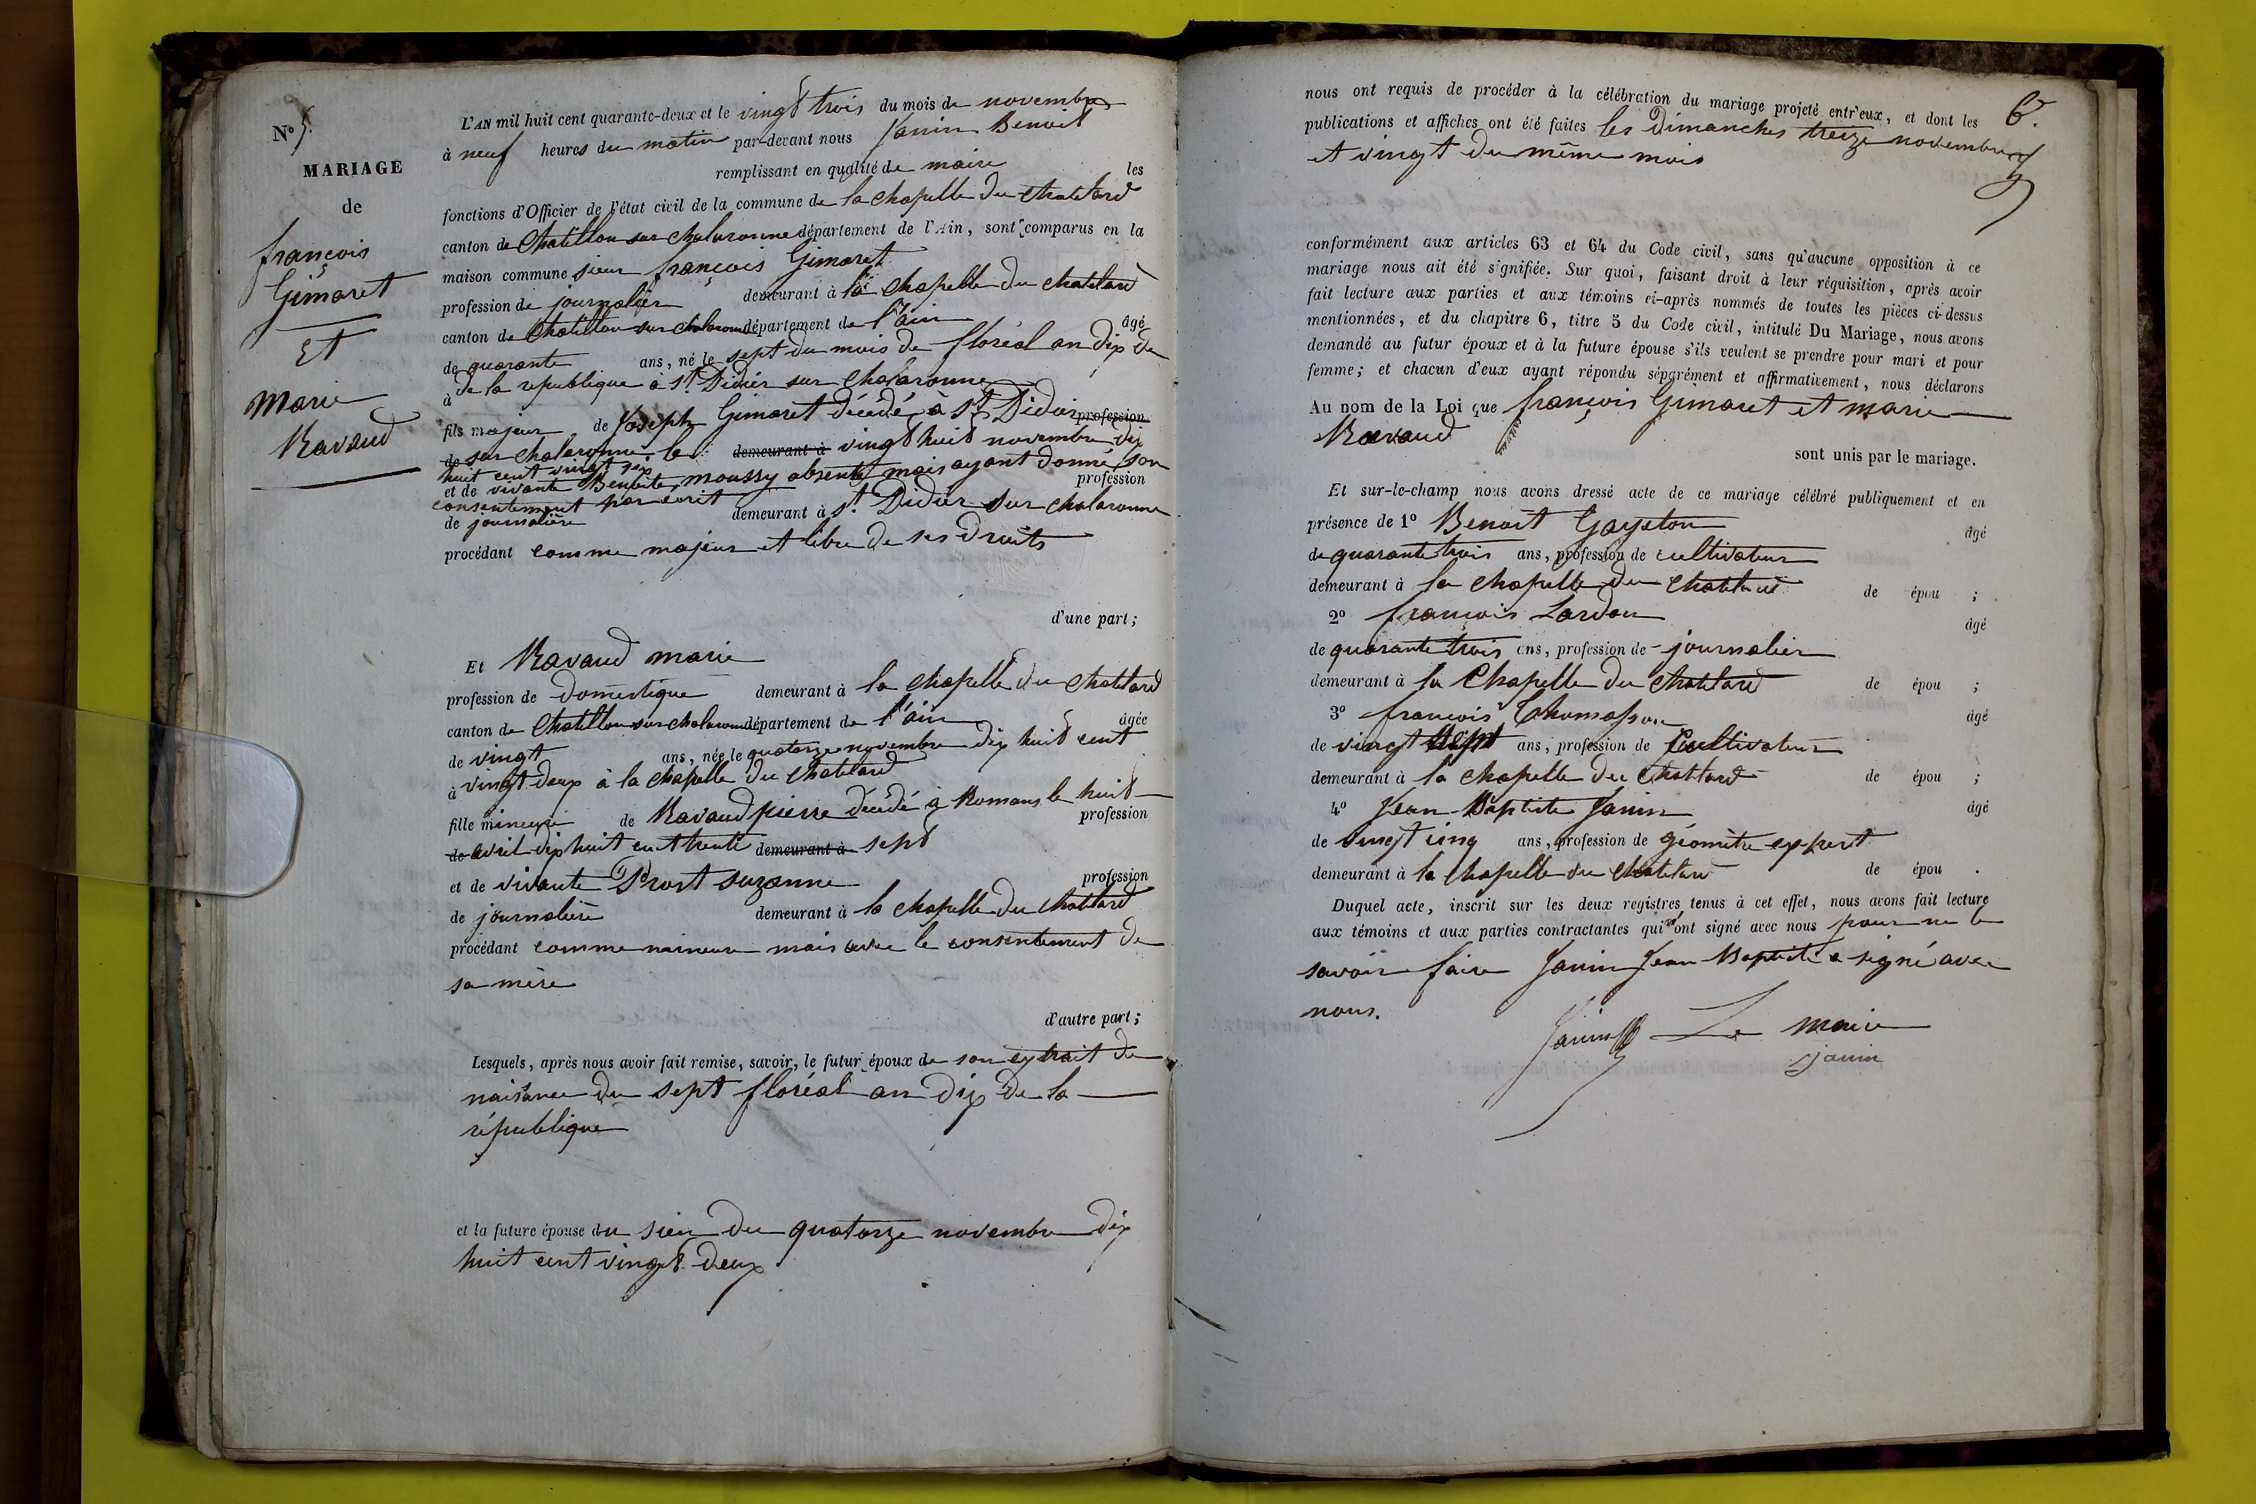 N° 5.
MARIAGE
de
françois
Gimaret
Et
Marie
Ravaud
L'AN mil huit cent quarante-deux et le vingt trois du mois de novembre
à neuf heures du matin par-devant nous Janin Benoit
remplissant en qualité de maire les
fonctions d'Officier de l'état civil de la commune de la chapelle du chatelard
canton de Chatillon sur chalaronne département de l'Ain, sont comparus en la
maison commune sieur françois Gimaret
profession de journalier demeurant à la chapelle du chatelard
canton de Chatillon sur chalaronne département de l'ain âgé
de quarante ans, né le sept du mois de floréal an dix de
à de la republique à St. Didier sur chalaronne
fils majeur de Joseph Gimaret décédé à St Didier profession
de sur chalaronne le demeurant à vingt huit novembre dix
huit cent vingt six
et de vivante Benoite moussy absente mais ayant donné son profession
consentement par écrit
de journalière demeurant à St. Didier sur chalaronne
procédant comme majeur et libre de ses droits
d'une part;
Et Ravaud marie
profession de domestique demeurant à la chapelle du chatelard
canton de Chatillon sur chalaronne département de l'ain âgée
de vingt ans, née le quatorze novembre dix huit cent
à vingt deux à la chapelle du chatelard
fille mineure de Ravaud pierre décédé à Romans le huit profession
de avril dix huit cent trente demeurant à sept
et de vivante Prost suzanne profession
de journalière demeurant à la chapelle du chatelard
procédant comme mineure mais avec le consentement de
sa mère
d'autre part;
Lesquels, après nous avoir fait remise, savoir, le futur époux de son extrait de
naissance du sept floréal an dix de la
république
et la future épouse du sien du quatorze novembre dix
huit cent vingt deux
6.
nous ont requis de procéder à la célébration du mariage projeté entr'eux, et dont les
publications et affiches ont été faites les Dimanches treize novembre
et vingt du même mois
conformément aux articles 63 et 64 du Code civil, sans qu'aucune opposition à ce
mariage nous ait été signifiée. Sur quoi, faisant droit à leur réquisition, après avoir
fait lecture aux parties et aux témoins ci-après nommés de toutes les pièces ci-dessus
mentionnées, et du chapitre 6, titre 5 du Code civil, intitulé Du Mariage, nous avons
demandé au futur époux et à la future épouse s'ils veulent se prendre pour mari et pour
femme; et chacun d'eux ayant répondu séparément et affirmativement, nous déclarons
Au nom de la Loi que françois Gimaret et marie
Ravaud
sont unis par le mariage.
Et sur-le-champ nous avons dressé acte de ce mariage célébré publiquement et en
présence de 1° Benoit Gayston âgé
de quarante trois ans, profession de cultivateur
demeurant à la chapelle du chatelard de épou ;
2° françois Lardon âgé
de quarante trois ans, profession de journalier
demeurant à la Chapelle du chatelard de épou ;
3° françois Thomasson âgé
de vingt sept ans, profession de cultivateur
demeurant à la chapelle du chatelard de épou ;
4° Jean-Baptiste Janin âgé
de vingt cinq ans, profession de géomètre expert
demeurant à la chapelle du chatelard de épou .
Duquel acte, inscrit sur les deux registres tenus à cet effet, nous avons fait lecture
aux témoins et aux parties contractantes qui n'ont signé avec nous pour ne le
savoir faire Janin Jean Baptiste a signé avec
nous.
Janin Le maire
Janin